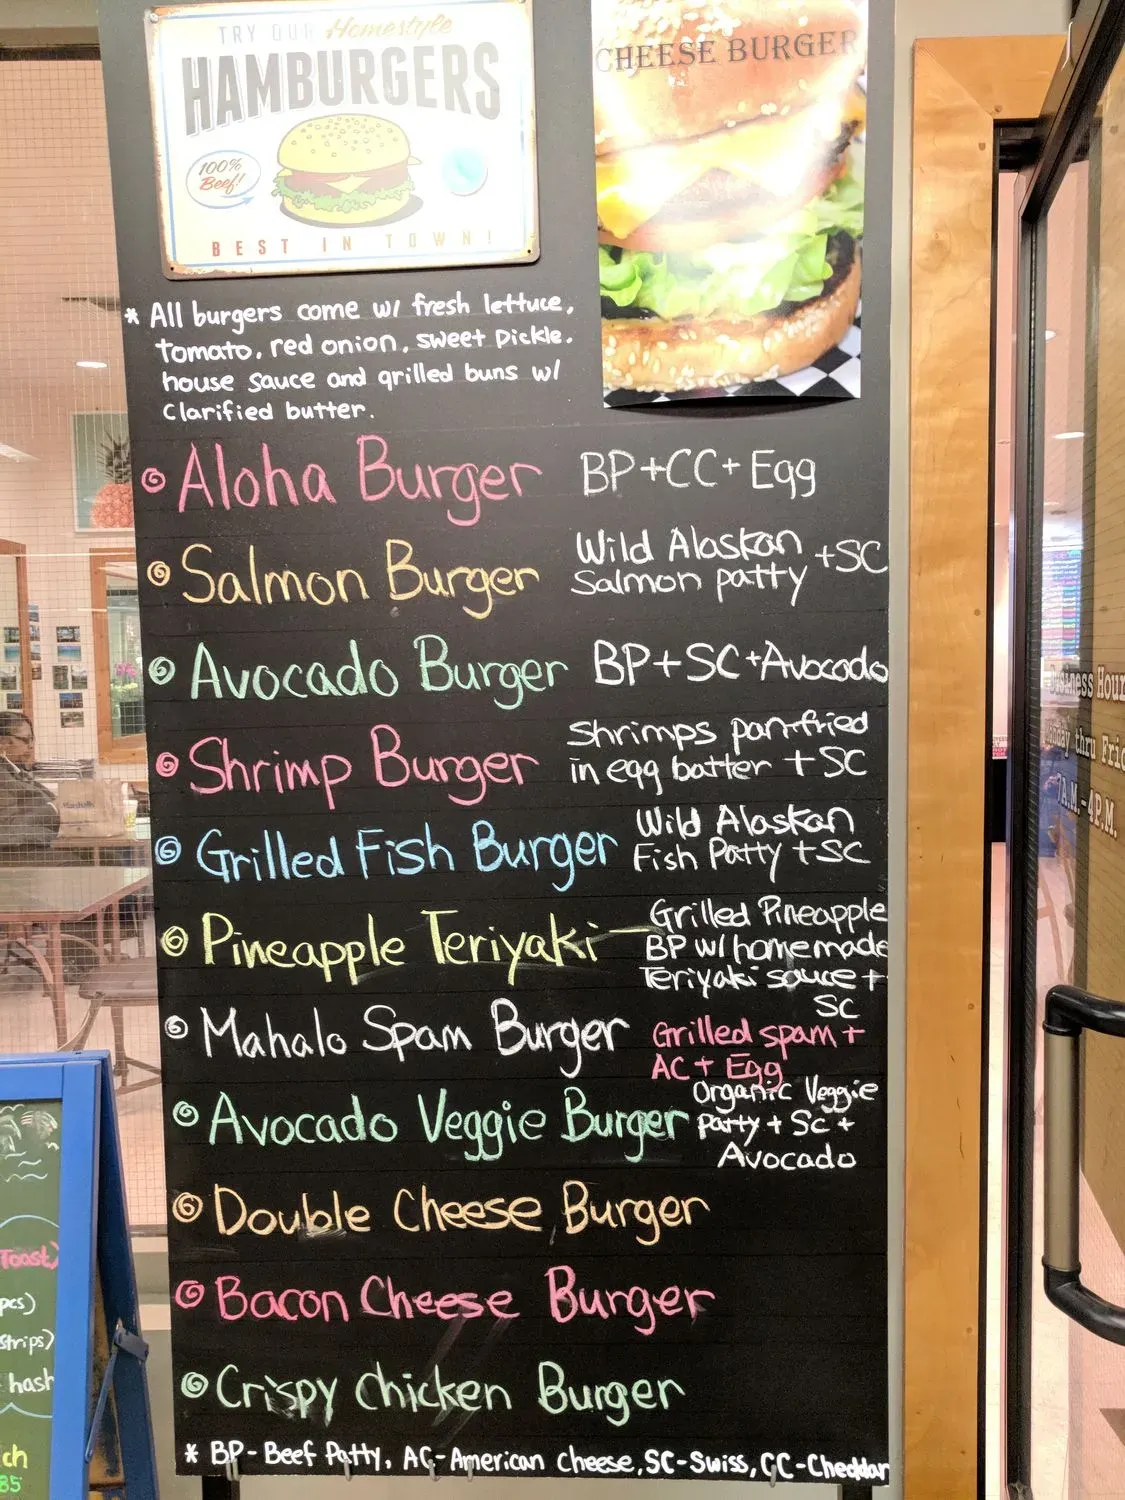 TRY OUR Homestyle
HAMBURGERS
100%
Beef!
BEST IN TOWN!
CHEESE BURGER
* All burgers come w/ fresh lettuce,
tomato, red onion, sweet pickle,
house sauce and grilled buns w/
clarified butter.
Aloha Burger BP+CC+Egg
Salmon Burger Wild Alaskan
Salmon patty +SC
Avocado Burger BP+SC+Avocado
Shrimp Burger Shrimps pan-fried
in egg batter + SC
Grilled Fish Burger Wild Alaskan
Fish Patty + SC
Pineapple Teriyaki - Grilled Pineapple
BP w/ homemade
Teriyaki sauce +
SC
Mahalo Spam Burger Grilled spam +
AC + Egg
Avocado Veggie Burger Organic Veggie
patty + SC +
Avocado
Double Cheese Burger
Bacon Cheese Burger
Crispy Chicken Burger
* BP-Beef Patty, AC-American cheese, SC-Swiss, CC-Cheddar
Toast)
pcs)
strips)
hash
ch
85
Business Hour
thru Fri
7A.M.-4P.M.